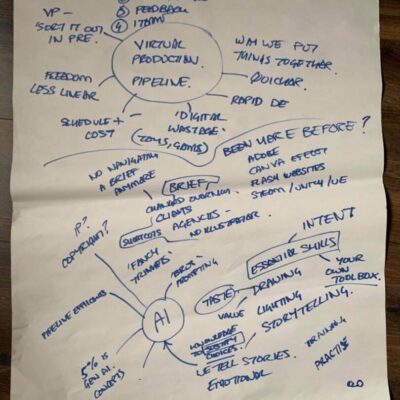 ③ FEEDBACK
④ ITERN
VP -
"SORT IT OUT
IN PRE.
VIRTUAL
PRODUCTION.
PIPELINE.
WAY WE PUT
THINGS TOGETHER.
QUICKER.
RAPID DE
FREEDOM
LESS LINEAR
SCHEDULE +
COST
'DIGITAL
WASTAGE'
(TOYS, GAMES)
BEEN HERE BEFORE?
ADOBE
CANVA EFFECT
FLASH WEBSITES
STEAM/UNITY/UE
NO NAVIGATING
A BRIEF
ANYMORE
BRIEF
CHANGES OVERNIGHT
CLIENTS
AGENCIES -
NO ILLUSTRATOR
SHORTCUTS
IP?
COPYRIGHT?
'FANCY
TRIMMERS'
PROMPTING
PIPELINE EFFICIENCIES
AI
5% IS
GEN AI.
CONCEPTS
INTENT
ESSENTIAL SKILLS
YOUR
OWN
TOOLBOX.
TASTE
DRAWING
VALUE
LIGHTING
STORYTELLING.
KNOWLEDGE
TO JUSTIFY
CHOICES.
WE TELL STORIES.
EMOTIONAL
TRAINING
PRACTISE